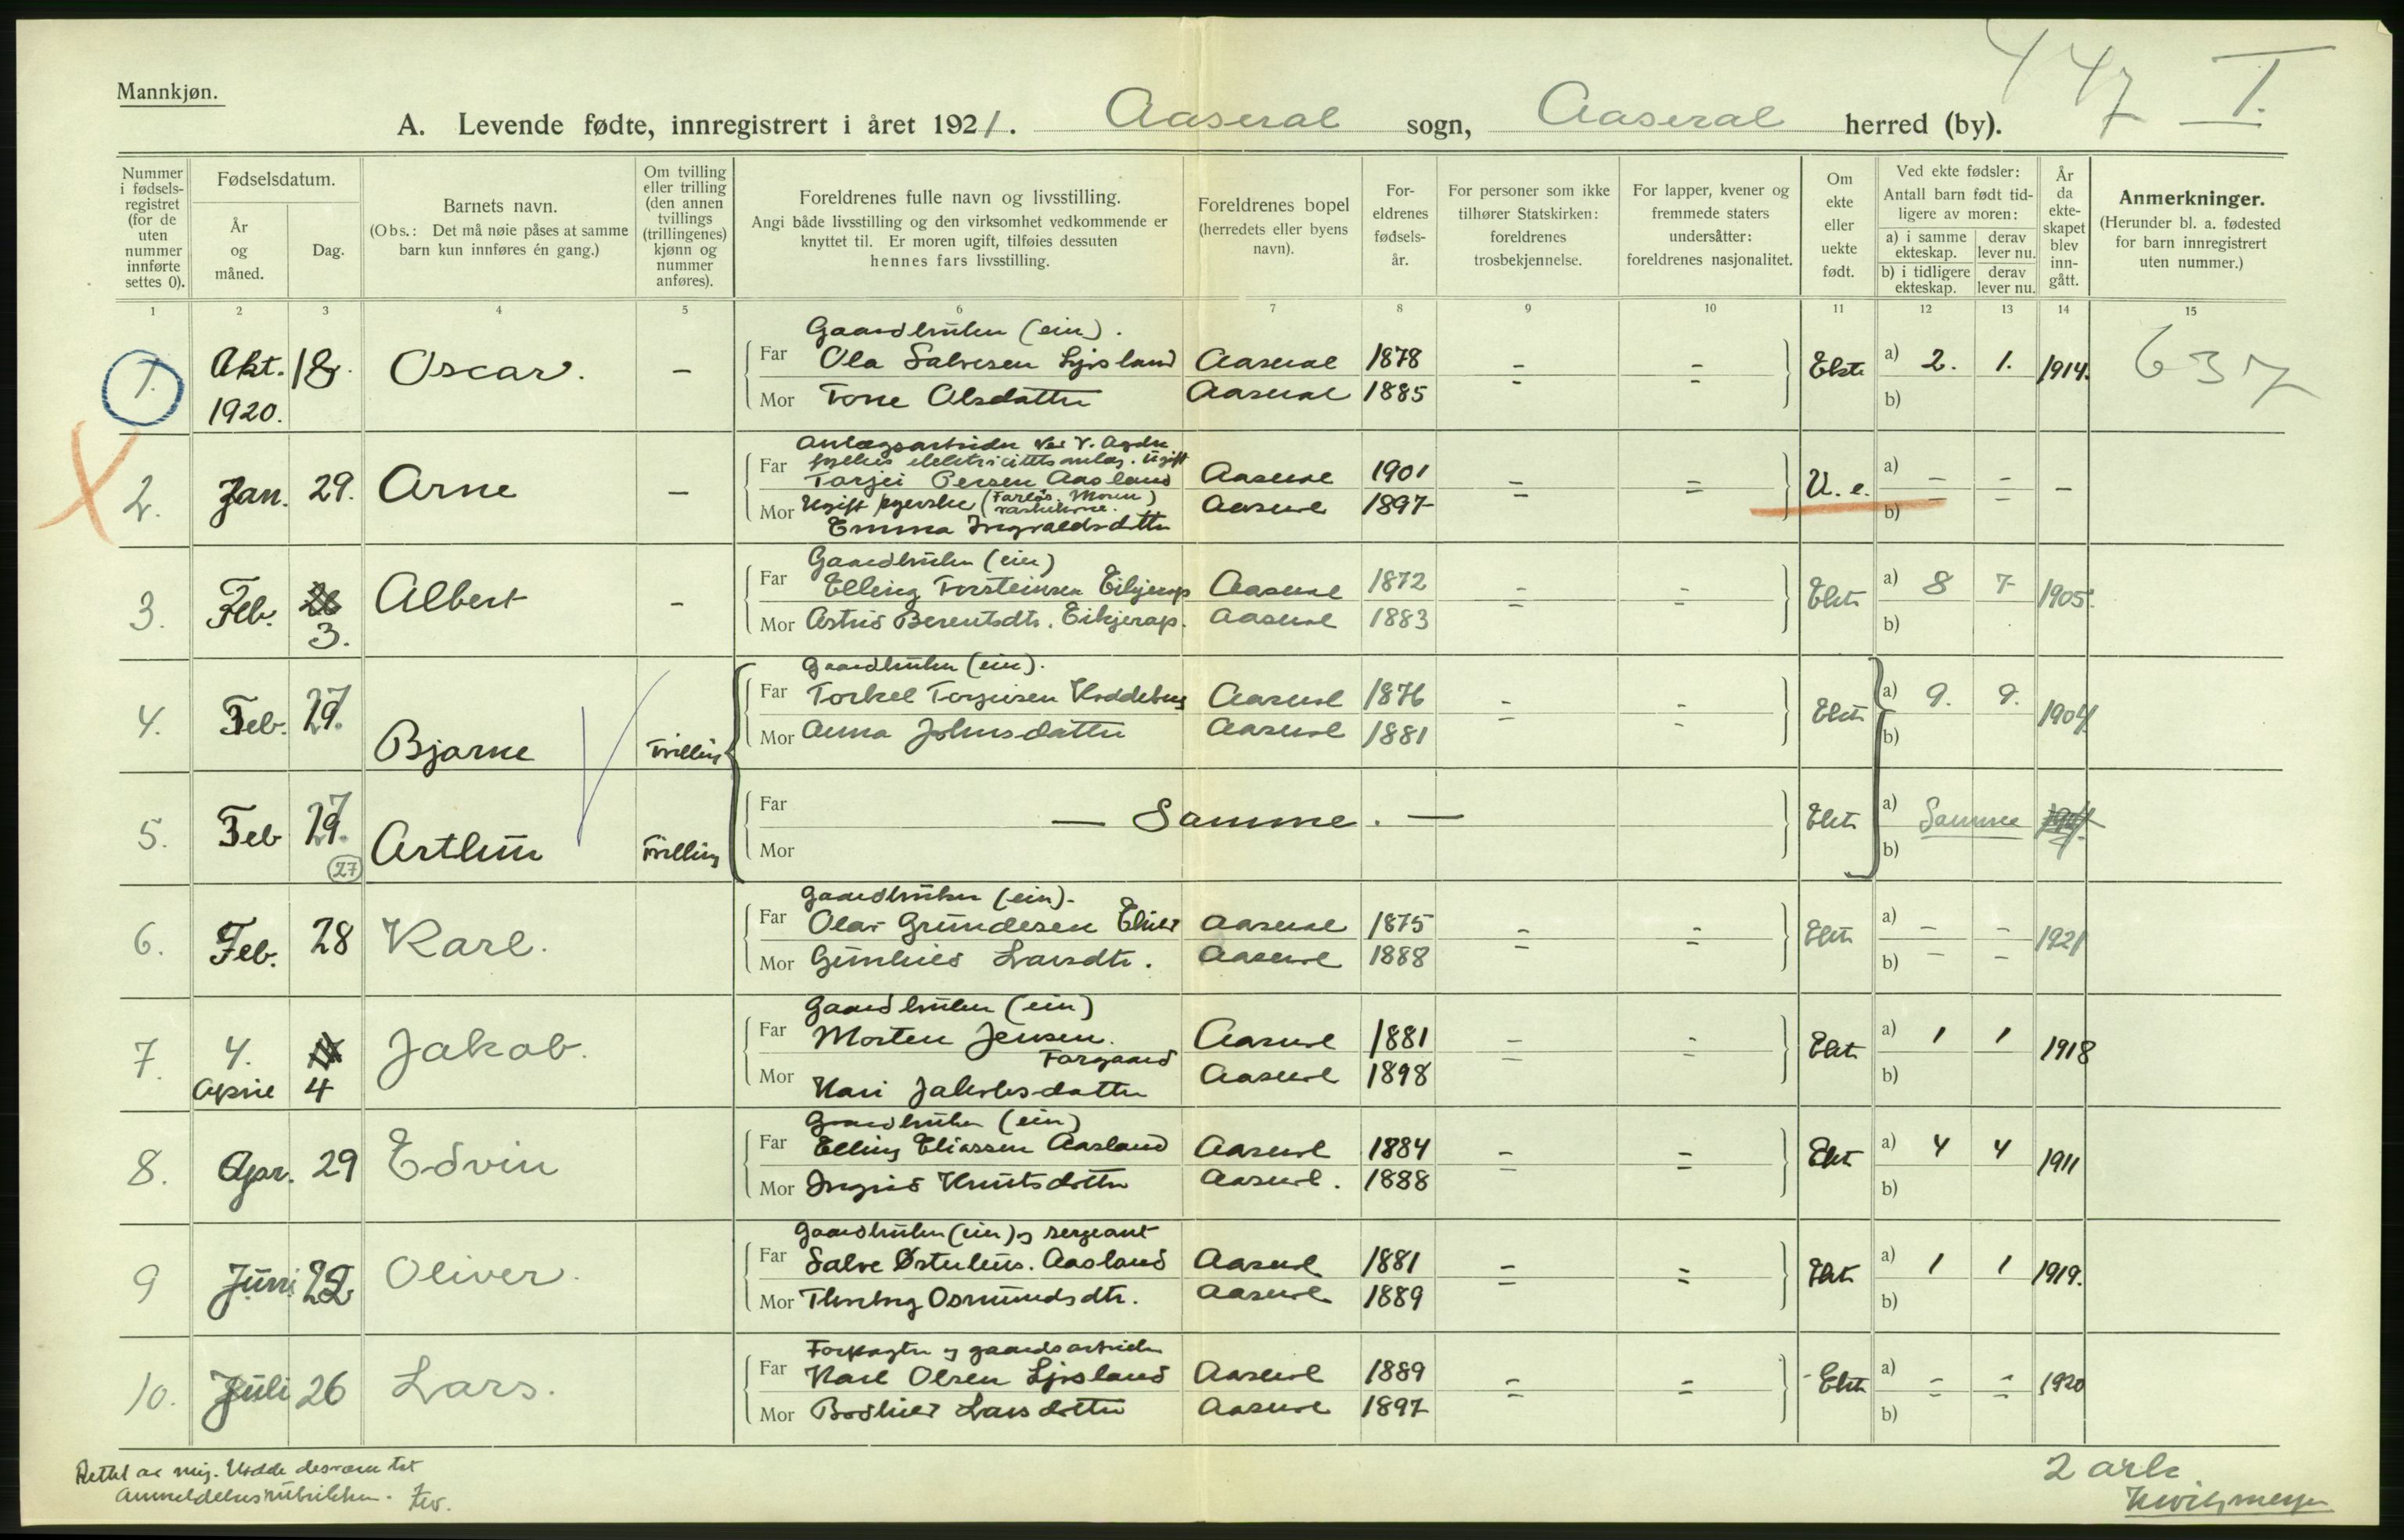 447 I.
Mannkjøn.
A. Levende fødte, innregistrert i året 1921. Aaseral sogn, Aaseral herred (by).
Nummer i fødsels-registret (for de uten nummer innførte settes 0).
Fødselsdatum.
År og måned.
Dag.
Barnets navn.
(Obs.: Det må nøie påses at samme barn kun innføres én gang.)
Om tvilling eller trilling (den annen tvillings (trillingenes) kjønn og nummer anføres).
Foreldrenes fulle navn og livsstilling.
Angi både livsstilling og den virksomhet vedkommende er knyttet til. Er moren ugift, tilføies dessuten hennes fars livsstilling.
Foreldrenes bopel (herredets eller byens navn).
For-eldrenes fødsels-år.
For personer som ikke tilhører Statskirken: foreldrenes trosbekjennelse.
For lapper, kvener og fremmede staters undersåtter: foreldrenes nasjonalitet.
Om ekte eller uekte født.
Ved ekte fødsler: Antall barn født tid-ligere av moren:
a) i samme ekteskap. derav lever nu.
b) i tidligere ekteskap. derav lever nu.
År da ekte-skapet blev inn-gått.
Anmerkninger.
(Herunder bl. a. fødested for barn innregistrert uten nummer.)
1 2 3 4 5 6 7 8 9 10 11 12 13 14 15
Gaardbruker (eier).
1. Okt. 18. Oscar. - Far Ola Salvesen Ljosland Aaseral 1878 = = Ekte a) 2. 1. 1914. 637
1920. Mor Tone Olsdatter Aaseral 1885 b)
Anlægsarbeider ved V. Agder
fylkes elektricitetsanlæg. Ugift
2. Jan. 29. Arne - Far Torjei Persen Aasland Aaseral 1901 = = U. e. a) = = -
Mor Ugift (Farløs. Moren Aaseral 1897 b)
Emma Ingvaldsdatter
Gaardbruker (eier)
3. Feb. 3. Albert - Far Elling Torsteinsen Eikjerap Aaseral 1872 = = Ekte a) 8 7 1905.
Mor Astrid Berentsdtr. Eikjerap. Aaseral 1883 b)
Gaardbruker (eier).
4. Feb. 27. Bjarne Tvilling Far Torkel Torjusen Aaseral 1876 = = Ekte a) 9. 9. 1904
Mor Anna Johnsdatter Aaseral 1881 b)
5. Feb 27. Arthur Tvilling Far — Samme. — Ekte a) Samme
(27) Mor b)
Gaardbruker (eier).
6. Feb. 28 Karl. Far Olav Aaseral 1875 = = Ekte a) = = 1921
Mor Gunhild Larsdtr. Aaseral 1888 b)
Gaardbruker (eier)
7. 4. Jakob. Far Morten Jensen. Aaseral 1881 = = Ekte a) 1 1 1918
Fargaard
April 4 Mor Kari Jakobsdatter Aaseral 1898 b)
Gaardbruker (eier)
8. Apr. 29 Edvin Far Elling Eliassen Aasland Aaseral 1884 = = Ekte a) 4 4 1911
Mor Ingrid Knutsdatter Aaseral. 1888 b)
Gaardbruker (eier) og sergeant
9 Juni 22 Oliver. Far Salve Aasland Aaseral 1881 = = Ekte a) 1 1 1919.
Mor Thorborg Osmundsdtr. Aaseral 1889 b)
Forpagter og gaardsarbeider
10. Juli 26 Lars. Far Karl Olsen Ljosland Aaseral 1889 = = Ekte a) = = 1920
Mor Bodhild Larsdatter Aaseral 1897 b)
Rettet av mig. desværre tat
anmeldelsesrubrikken.
2 ark.